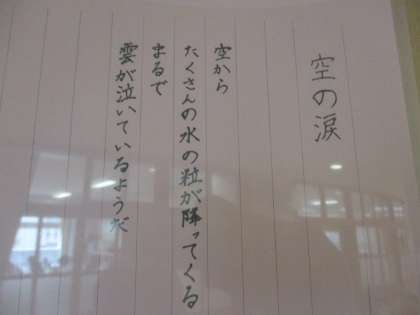 空の涙
空から
たくさんの水の粒が降ってくる
まるで
雲が泣いているようだ